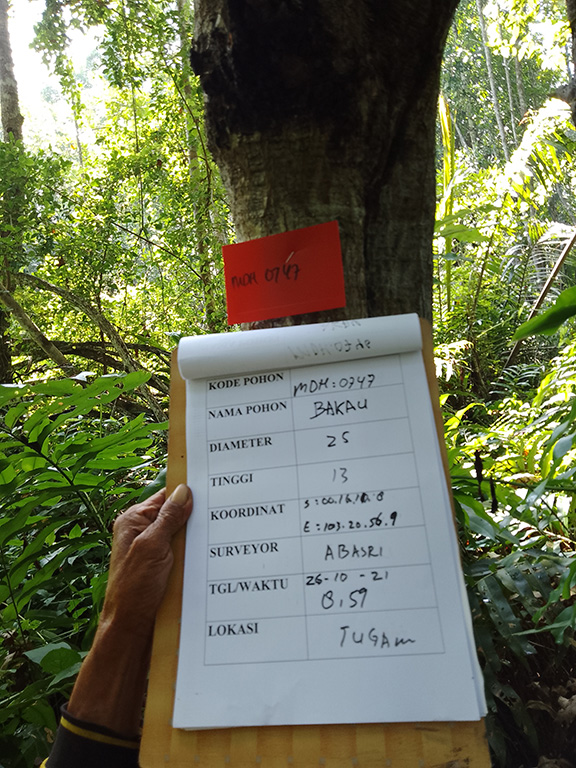 MDH 0747
KODE POHON MDH : 0747
NAMA POHON BAKAU
DIAMETER 25
TINGGI 13
KOORDINAT
E : 103.20.56.9
SURVEYOR ABASRI
TGL/WAKTU 26-10-21
8.59
LOKASI TUGAM